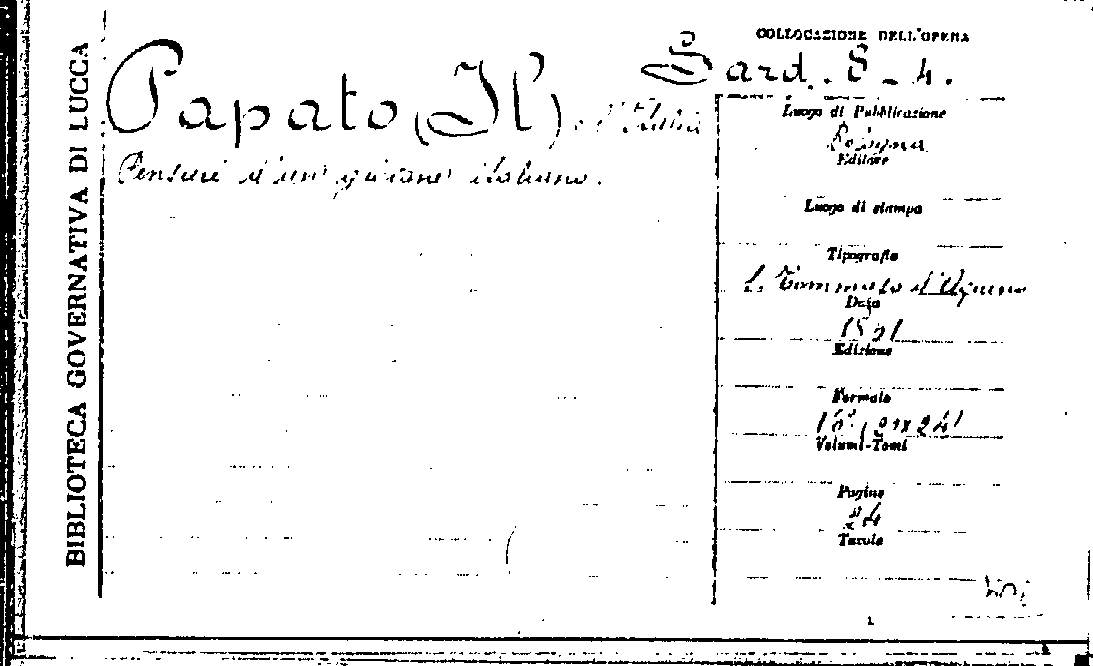 BIBLIOTECA GOVERNATIVA DI LUCCA
COLLOCAZIONE DELL'OPERA
Sard. 8-4.
Papato (Il) e l'Italia
Pensieri d'un giovane italiano.
Luogo di Pubblicazione
Bologna
Editore
Luogo di stampa
Tipografia
S. Tommaso d'Aquino
Data
Edizione
Formato
Volumi-Tomi
Pagine
24
Tavole